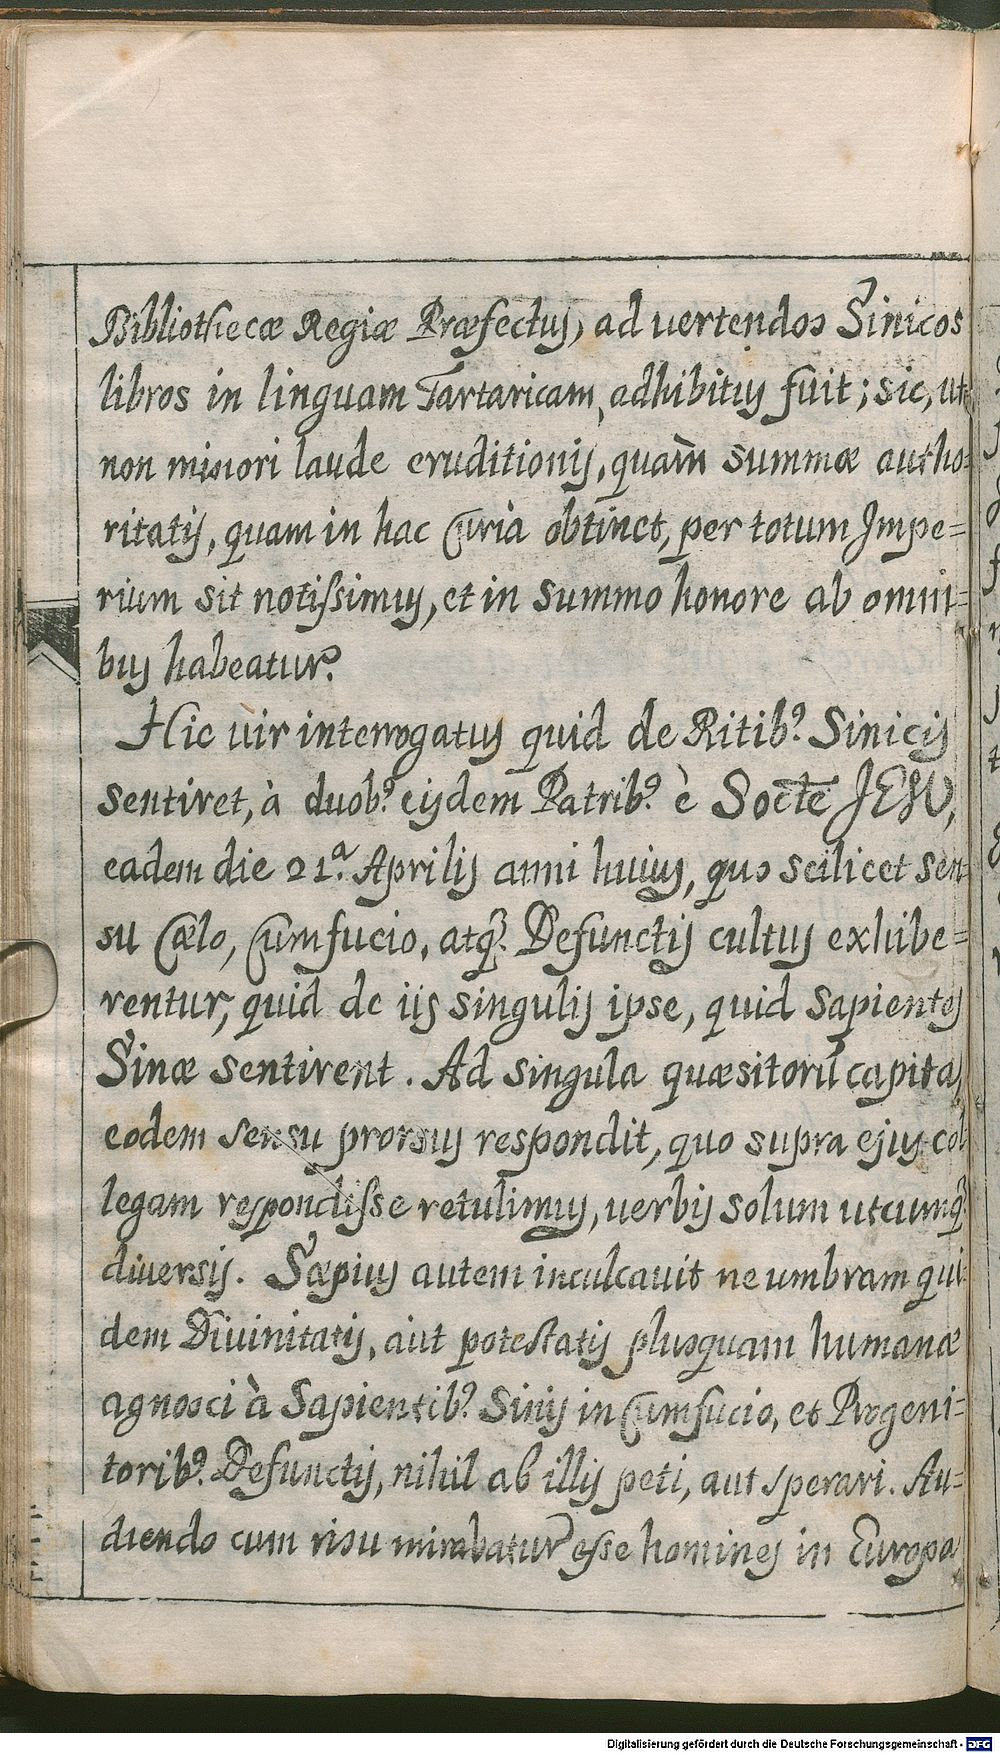 Bibliothecæ Regiæ Præfectus, ad uertendos Sinicos
libros in linguam Tartaricam, adhibitus fuit; sic, ut
non minori laude eruditionis, quàm summæ autho=
ritatis, quam in hac Curia obtinet, per totum Impe=
rium sit notissimus, et in summo honore ab omni=
bus habeatur.
Hic uir interrogatus quid de Ritib⁹ Sinicis
sentiret, à duob⁹ eisdem Patrib⁹ è Socte JESU,
eadem die 21ª Aprilis anni huius, quo scilicet sen=
su Cælo, Cumfucio, atq; Defunctis cultus exhibe=
rentur, quid de iis singulis ipse, quid Sapientes
Sinæ sentirent. Ad singula quæsitorū capita,
eodem sensu prorsus respondit, quo supra ejus col=
legam respondisse retulimus, uerbis solum utcumq;
diuersis. Sæpius autem inculcauit ne umbram qui=
dem Diuinitatis, aut potestatis plusquam humanæ
agnosci à Sapientib⁹ Sinis in Cumfucio, et Progeni=
torib⁹ Defunctis, nihil ab illis peti, aut sperari. Au=
diendo cum risu mirabatur esse homines in Europa
Digitalisierung gefördert durch die Deutsche Forschungsgemeinschaft - DFG